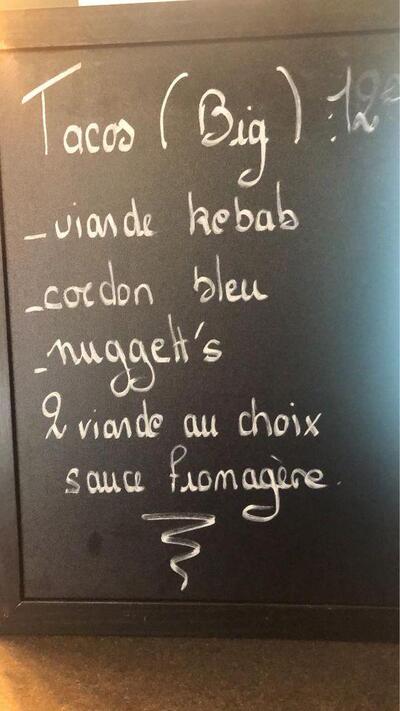 Tacos (Big) : 12€
- viande kebab
- cordon bleu
- nuggett's
2 viande au choix
sauce fromagère.